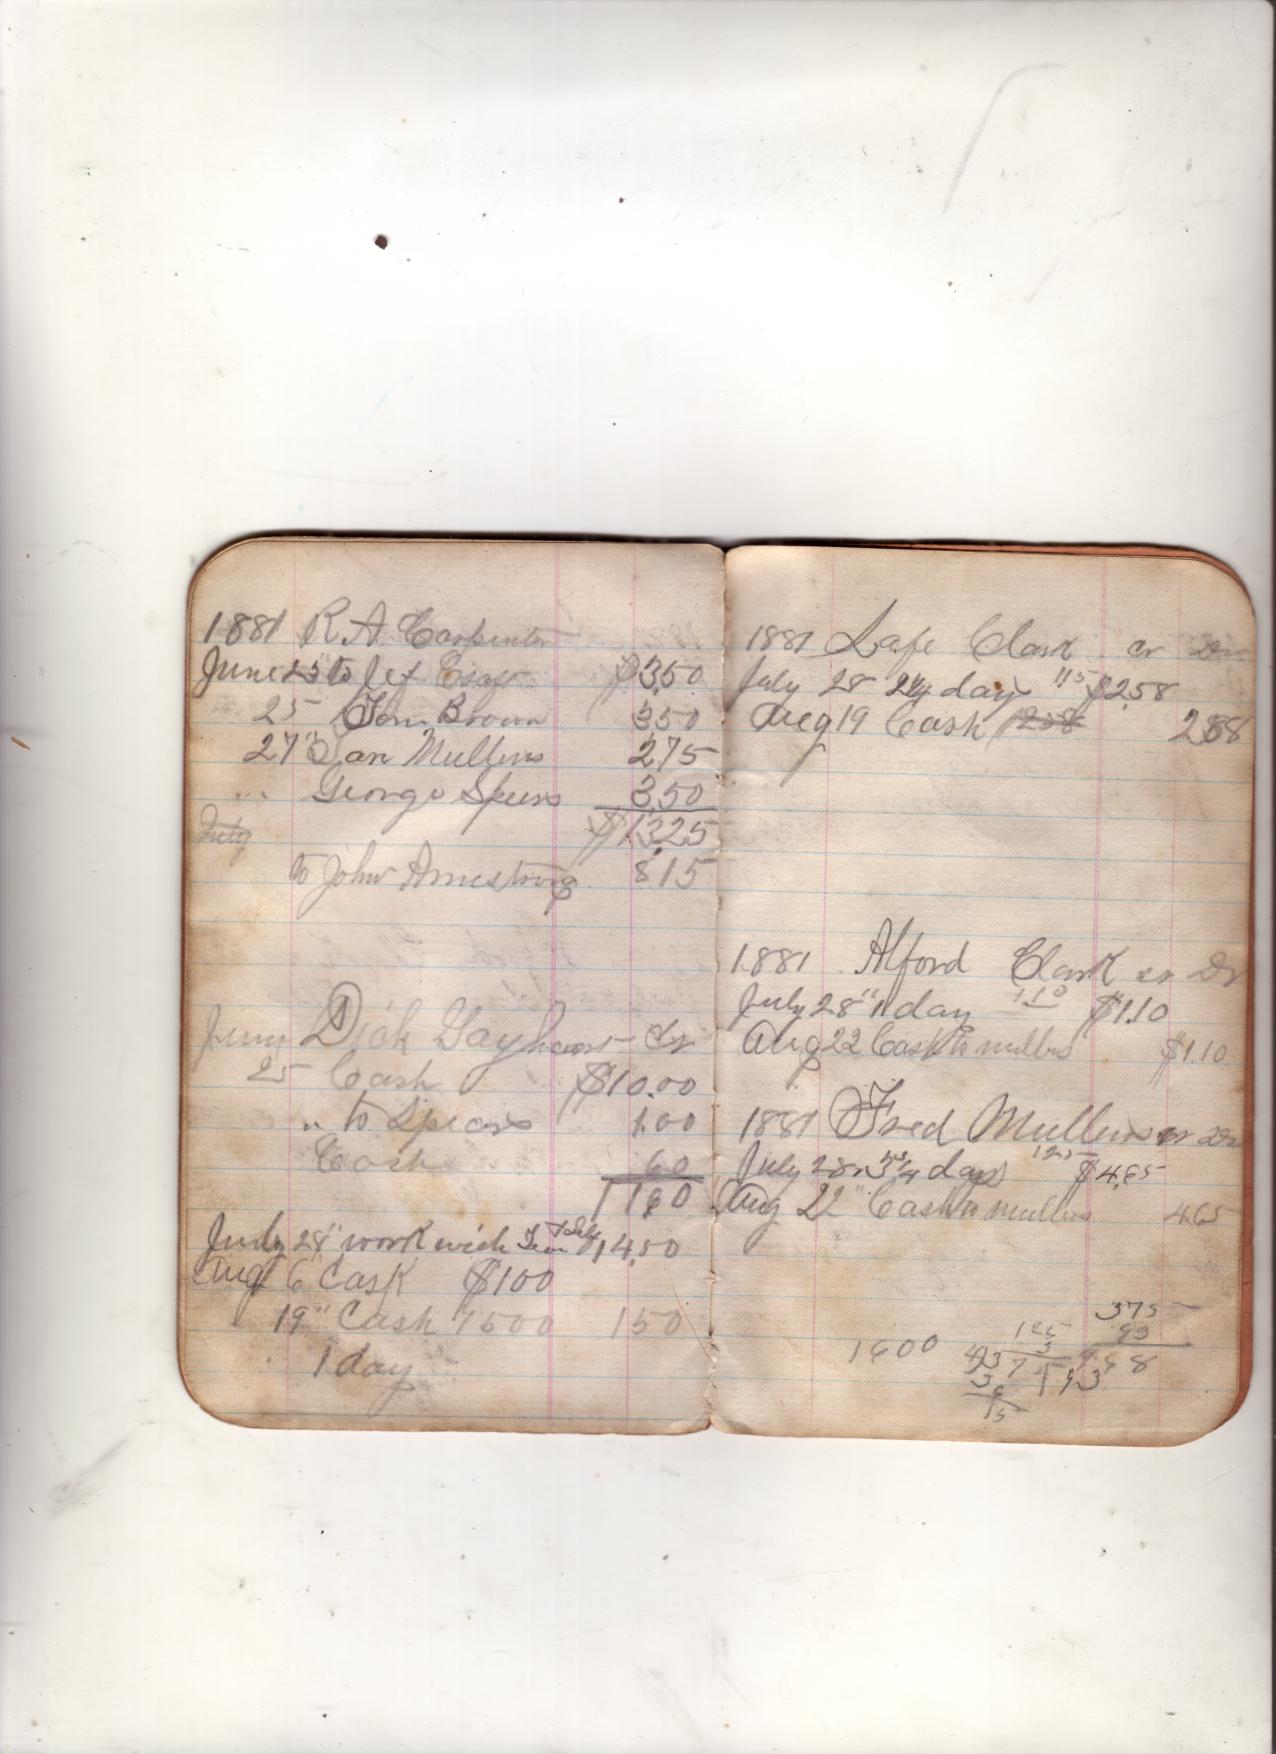 1881 R. A. Carpenter
June 25" to Jef $3.50
25 Tom Brown 3.50
27" Dan Mullins 2.75
" George Spears 3.50
$13.25
July
to John Armstrong 8.15
June Dick Gayheart Dr
25 Cash $10.00
" to Spears 1.00
Cash 60
1160
July 28" work with Team 14.50
Aug 6" Cash $100
19" Cash 1500 150
1 day
1881 Lafe Clark cr Dr
July 28 2 1/4 days 115 $2.58
Aug 19 Cash 258 258
1881 Alford Clark cr Dr
July 28" 1 day 1.10 $1.10
Aug 22 Cash to mullins $1.10
1881 Fred Mullins cr Dr
July 28" 3 3/4 days 125 $4.65
Aug 22" Cash to mullins 465
375
93
125
3
1600 4 375 93 468
36
15